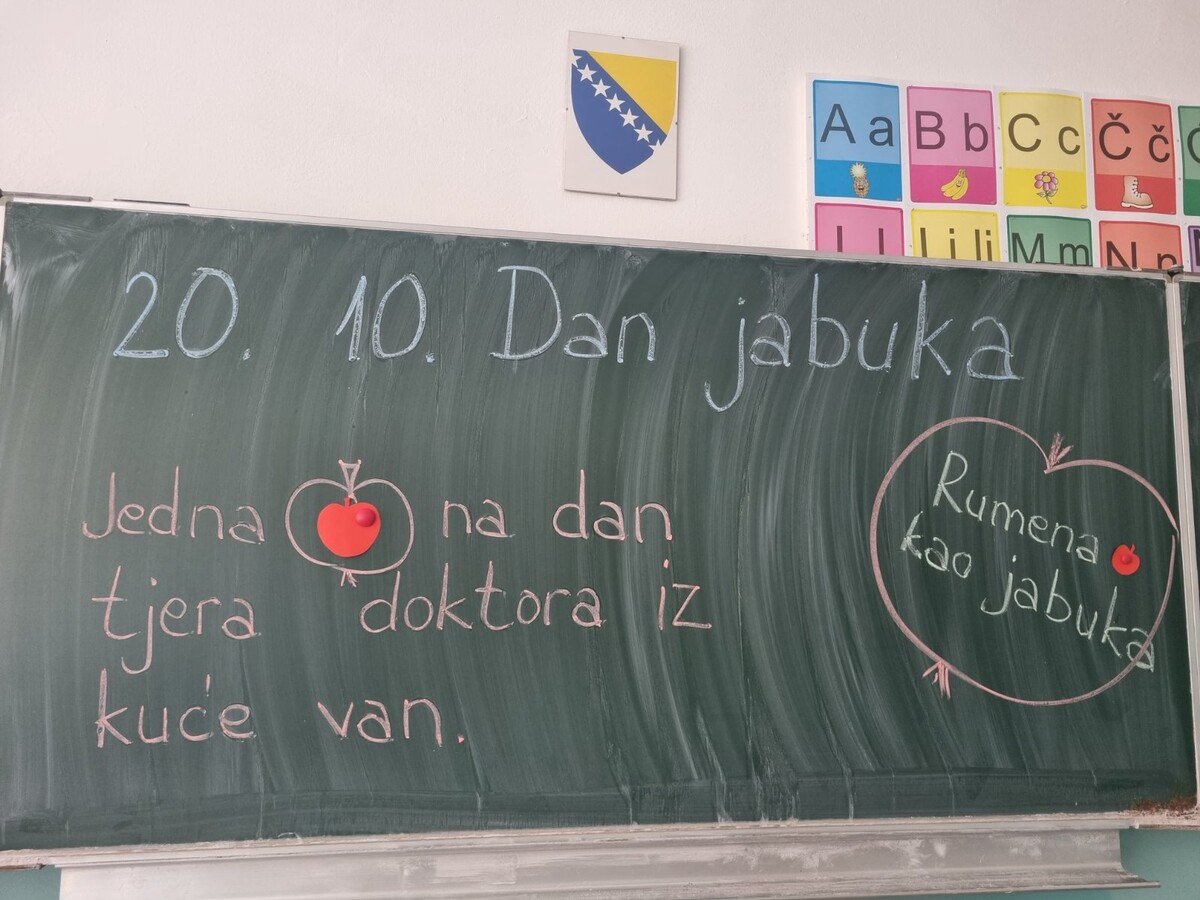 A a
B b
C c
Č č
L l
Lj lj
M m
N n
20. 10. Dan jabuka
Jedna na dan
tjera doktora iz
kuće van.
Rumena
kao jabuka